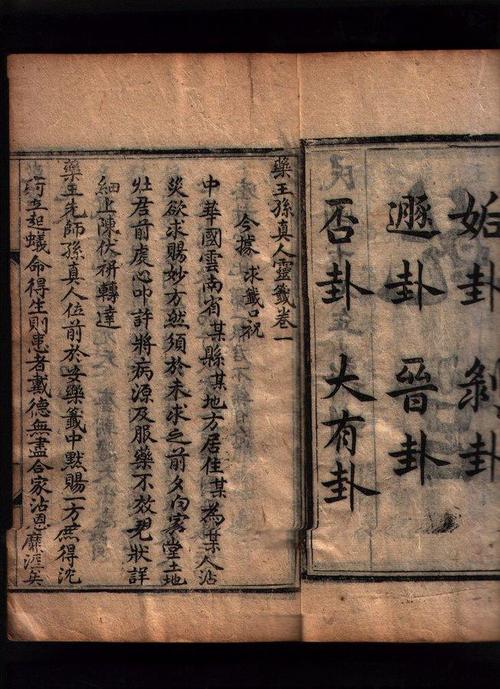 姤卦 剝卦
遯卦 晉卦
否卦 大有卦
藥王孫真人靈籤卷一
今據 求籤口祝
中華國雲南省某縣某地方居住某為某人沾
災欲求賜妙方然須於未求之前夕向家堂土地
灶君前虔心叩許將病源及服藥不效狀詳
細上陳伏祈轉達
藥王先師孫真人位前於妙藥籤中默賜一方庶得沈
疴立起蟻命得生則患者戴德無盡合家沾恩靡涯矣